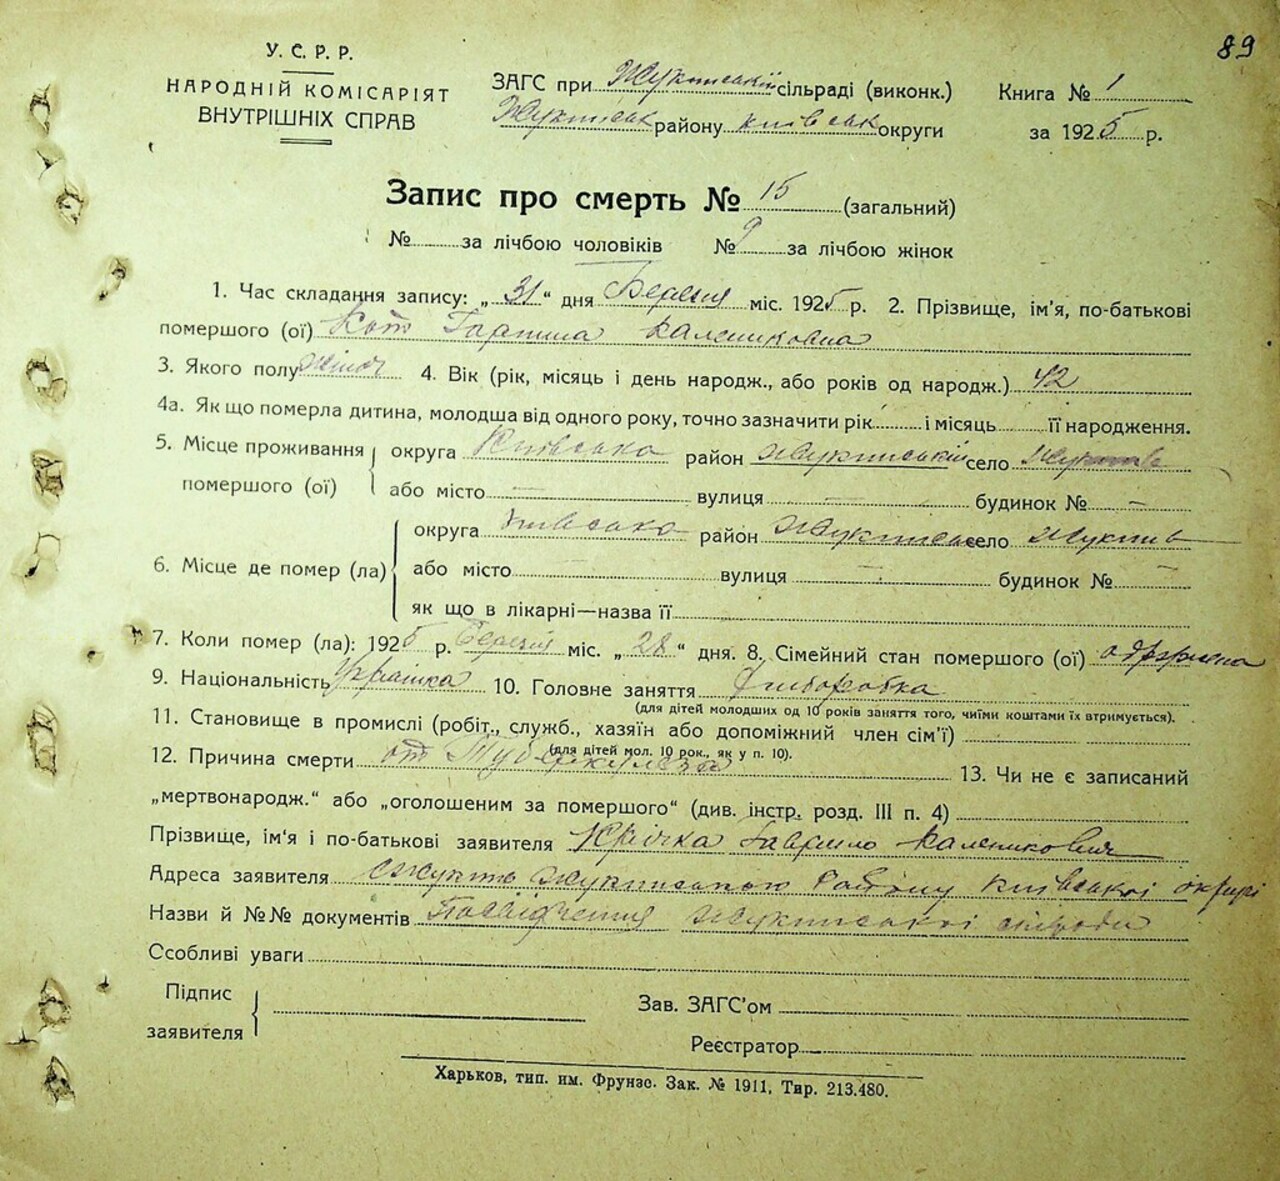 89
У. С. Р. Р.
НАРОДНІЙ КОМІСАРІЯТ
ВНУТРІШНІХ СПРАВ
ЗАГС при Жукинській сільраді (виконк.)
Жукинськ району київськ округи
Книга № 1
за 1925 р.
Запис про смерть № 15 (загальний)
№ за лічбою чоловіків № 9 за лічбою жінок
1. Час складання запису: „31“ дня Березня міс. 1925 р. 2. Прізвище, ім'я, по-батькові
помершого (ої) Кот Гарпина Калениковна
3. Якого полу жіноч 4. Вік (рік, місяць і день народж., або років од народж.) 42
4а. Як що померла дитина, молодша від одного року, точно зазначити рік і місяць її народження.
5. Місце проживання помершого (ої) округа Київська район Жукинський село
або місто — вулиця — будинок № —
6. Місце де помер (ла) округа Київська район Жукинськ село Жукин
або місто — вулиця — будинок № —
як що в лікарні—назва її
7. Коли помер (ла): 1925 р. Березня міс. „28“ дня. 8. Сімейний стан помершого (ої) одружена
9. Національність Українка 10. Головне заняття Хліборобка
(для дітей молодших од 10 років заняття того, чиїми коштами їх втримується).
11. Становище в промислі (робіт., служб., хазяїн або допоміжний член сім'ї)
(для дітей мол. 10 рок., як у п. 10).
12. Причина смерти от Туберкульоза 13. Чи не є записаний
„мертвонародж.“ або „оголошеним за помершого“ (див. інстр. розд. III п. 4)
Прізвище, ім'я і по-батькові заявителя Крічка Гаврило Каленикович
Адреса заявителя Жукинського району Київської округи
Назви й №№ документів Посвідчення Жукинської сільради
Особливі уваги
Підпис заявителя
Зав. ЗАГС'ом
Реєстратор
Харьков, тип. им. Фрунзе. Зак. № 1911, Тир. 213.480.